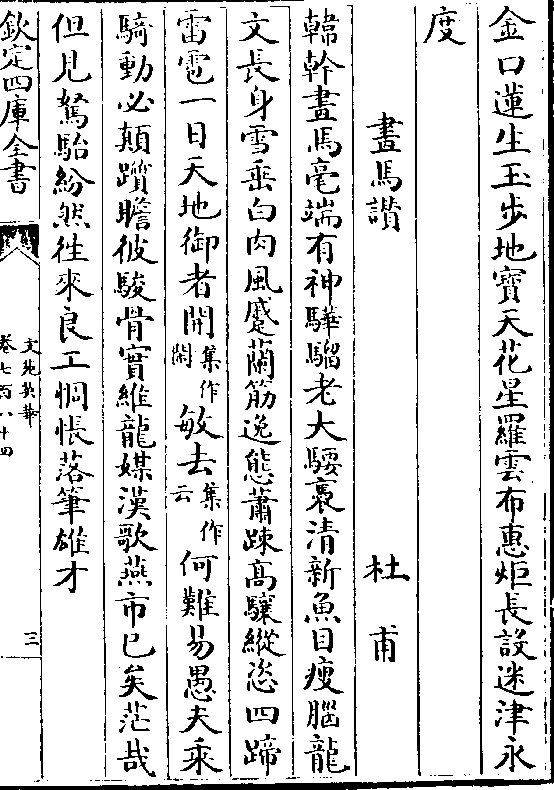 金口蓮生玉步地寶天花星羅雲布惠炬長設迷津永
度
畫馬讃　杜甫
韓幹畫馬毫端有神驊騮老大騕褭清新魚目瘦腦龍
文長身雪垂白肉風蹙蘭筋逸態蕭踈髙驤縱恣四蹄
雷雹一日天地御者開集作閑敏去集作云何難易愚夫乘
騎動必顛躓瞻彼駿骨實維龍媒漢歌燕市已矣茫哉
但見駑駘紛然徃來良工惆悵落筆雄才
欽定四庫全書
文苑英華
卷七百八十四
三